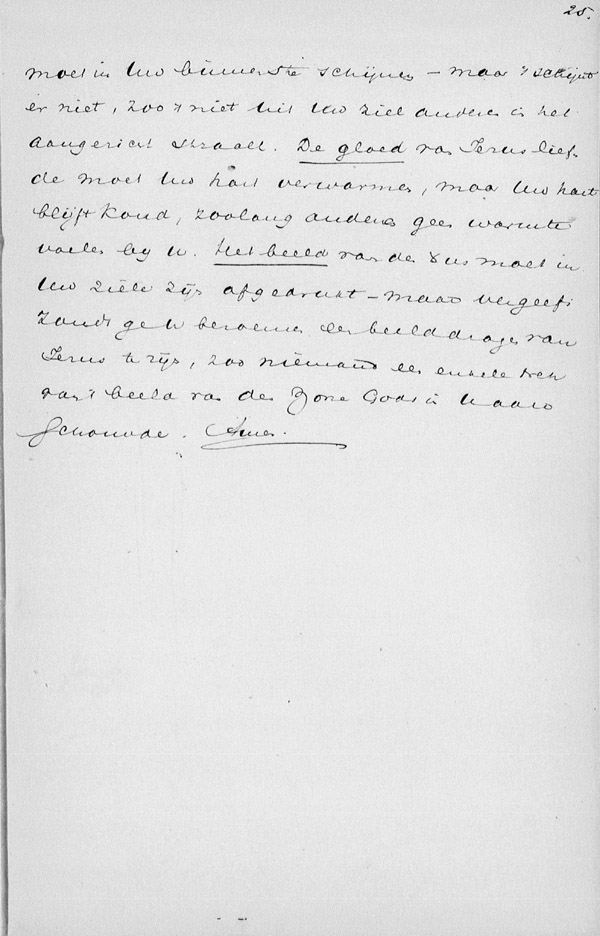 25.
moet in Uw binnenste schijnen – maar 't schijnt
er niet, zoo 't niet uit Uw ziel anderen in het
aangezicht straalt. De gloed van Jezus lief-
de moet Uw hart verwarmen, maar Uw hart
blijft koud, zoolang anderen geen warmte
voelen bij U. Het beeld van de moet in
Uw ziele zijn afgedrukt – maar vergeefs
zoudt ge U beroemen een beelddrager van
Jezus te zijn, zoo niemand een enkele trek
van 't beeld van den Zone Gods in U aan-
schouwde. Amen.